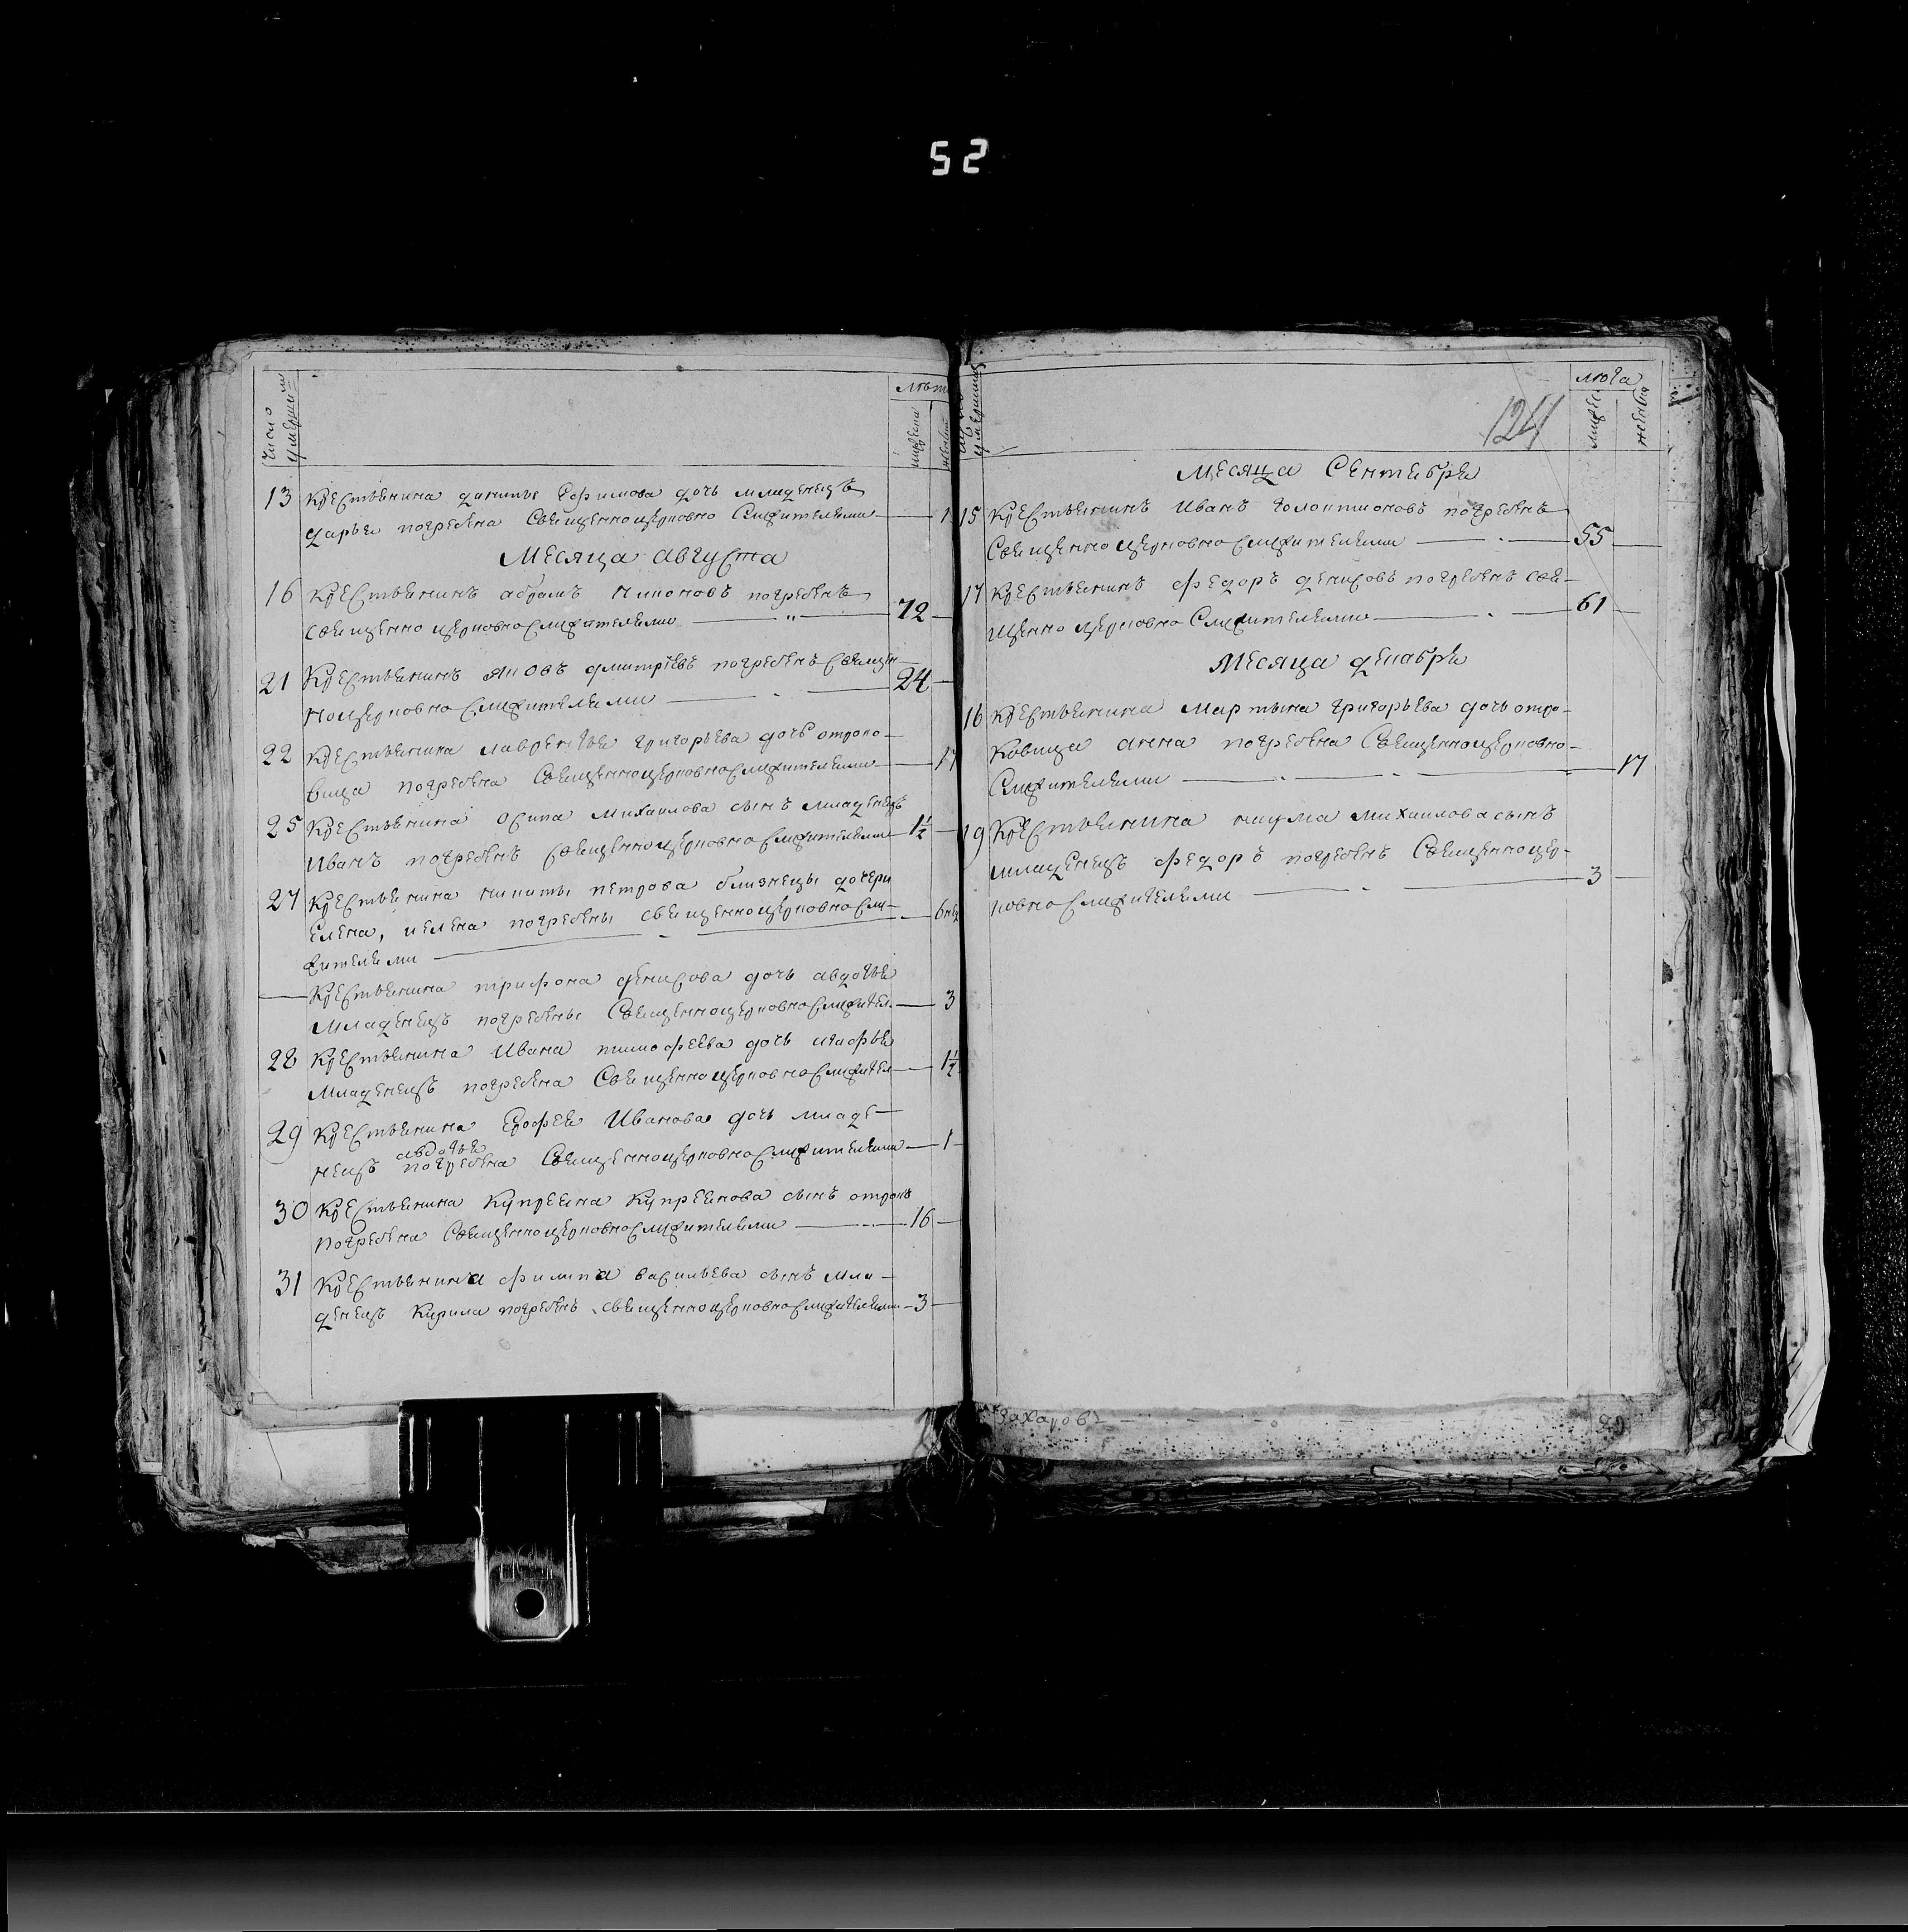 52
число умерши
лѣт
мужеска
женски
13 крестьянина данилы Ефимова дочь младенецъ
дарья погребена Священноцерковно Служителями 1
Месяца августа
16 крестьянинъ абрамъ никоновъ погребенъ
священно церковнослужителями 72
21 Крестьянинъ яковъ дмитріевъ погребенъ священ-
ноцерковнослужителями 24
22 Крестьянина лаврентья григорьева дочь отроко-
вица погребена Священноцерковнослужителями 17
25 Крестьянина осипа михаилова сынъ младенецъ
Иванъ погребенъ священноцерковнослужителями 1½
27 Крестьянина никиты петрова близнецы дочери
Елена, иелена погребены священноцерковнослу-
жителями 6 нед
Крестьянина трифона денисова дочь авдотья
младенецъ погребены Священноцерковнослужител 3
28 Крестьянина Ивана тимофеева дочь
младенецъ погребена Священноцерковнослужител 1½
29 Крестьянина Ерофея Иванова дочь младе-
авдотья
нецъ погребена Священноцерковнослужителями 1
30 Крестьянина Купреяна Купреянова сынъ отрокъ
погребена Священноцерковнослужителями 16
31 Крестьянина филипа васильева сынъ мла-
денецъ Кирила погребенъ священноцерковнослужителями 3
умершихъ
лѣта
мужеск
женска
124
Месяца Сентября
15 Крестьянинъ Иванъ погребенъ
Священно церковнослужителями 55
17 Крестьянинъ федоръ денисовъ погребенъ свя-
щенно церковно Служителями 61
Месяца декабря
16 крестьянина мартына григорьева дочь отро-
ковица анна погребена Священноцерковно-
Служителями 17
19 Крестьянина наума михаилова сынъ
младенецъ федоръ погребенъ Священноцер-
ковнослужителями 3
Захаровъ